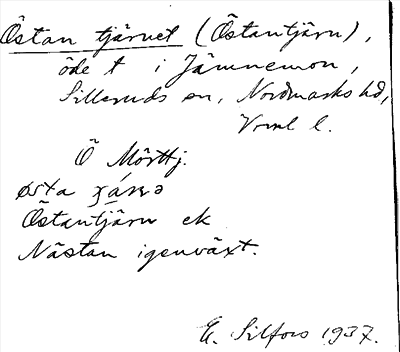 Östan tjärnet (Östantjärn),
öde t i Jämnemon,
Silleruds sn, Nordmarks hd,
Vrml l.
Ö Mörttj.
østa
Östantjärn ek
Nästan igenväxt.
E. Silfors 1937.